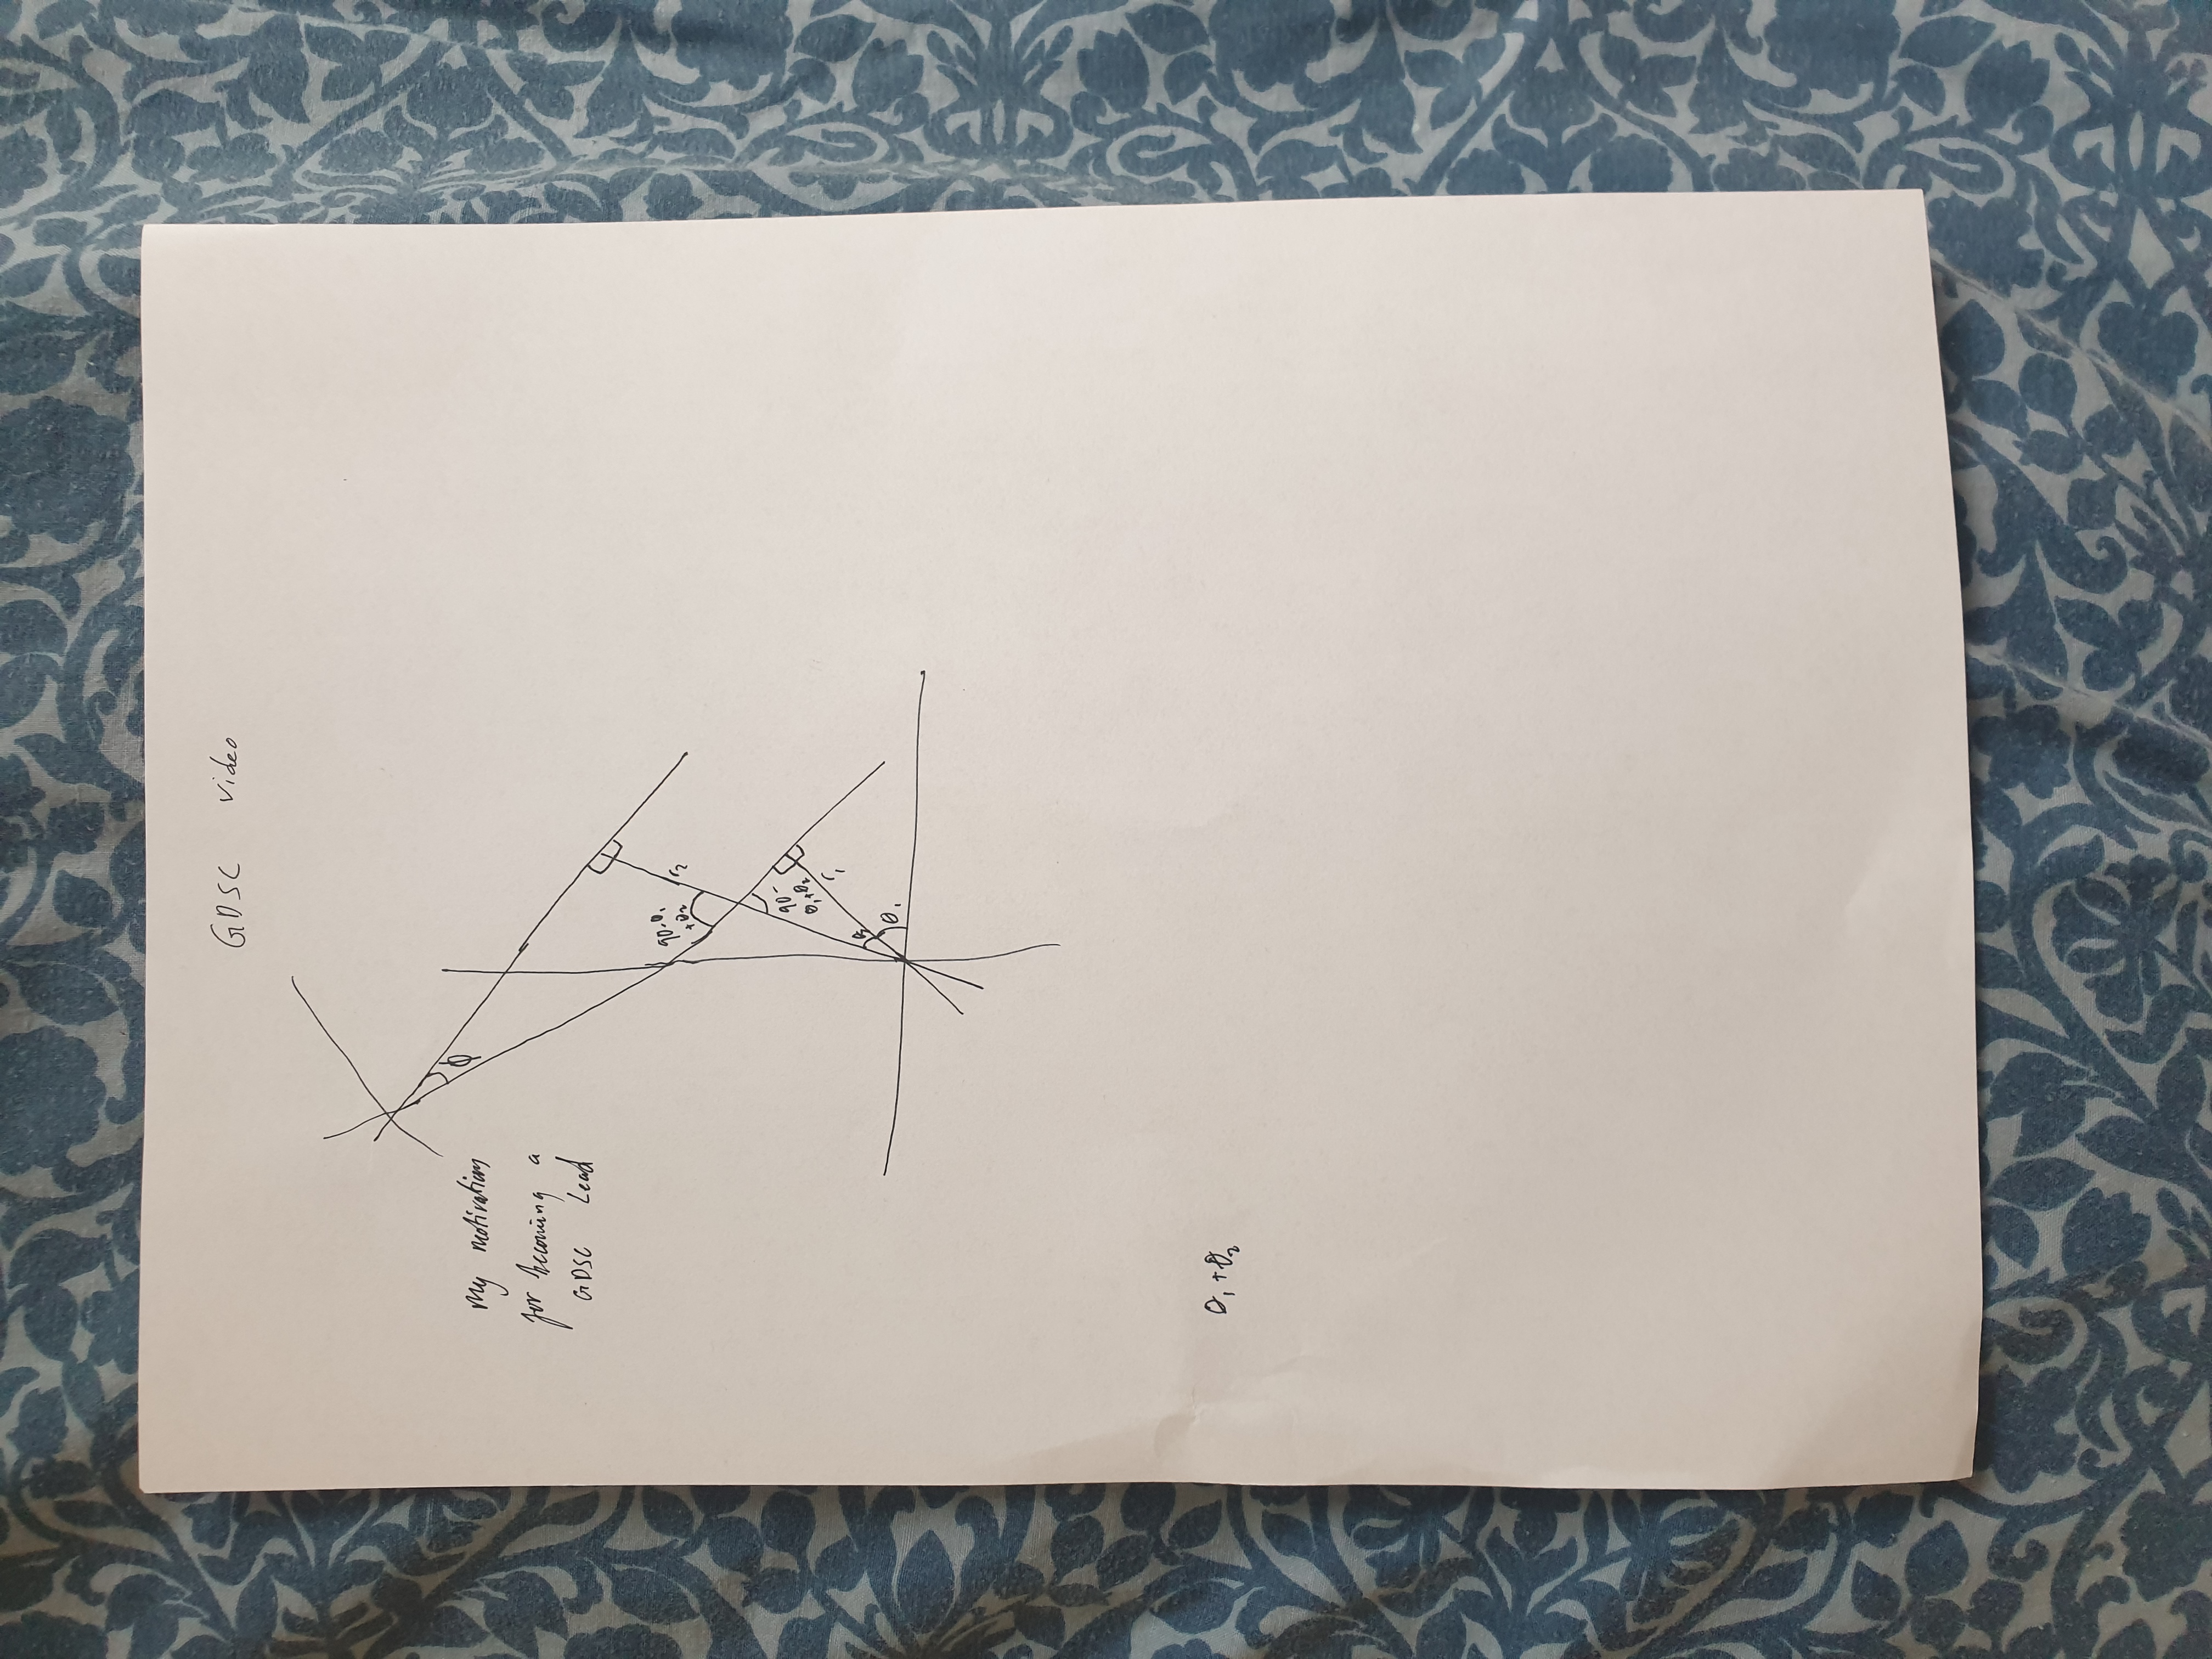 GDSC video
My motivations
for becoming a
GDSC Lead
ϕ
90-θ₁
+θ₂
r₂
90-
θ₁+θ₂
r₁
θ₁
θ₁+θ₂